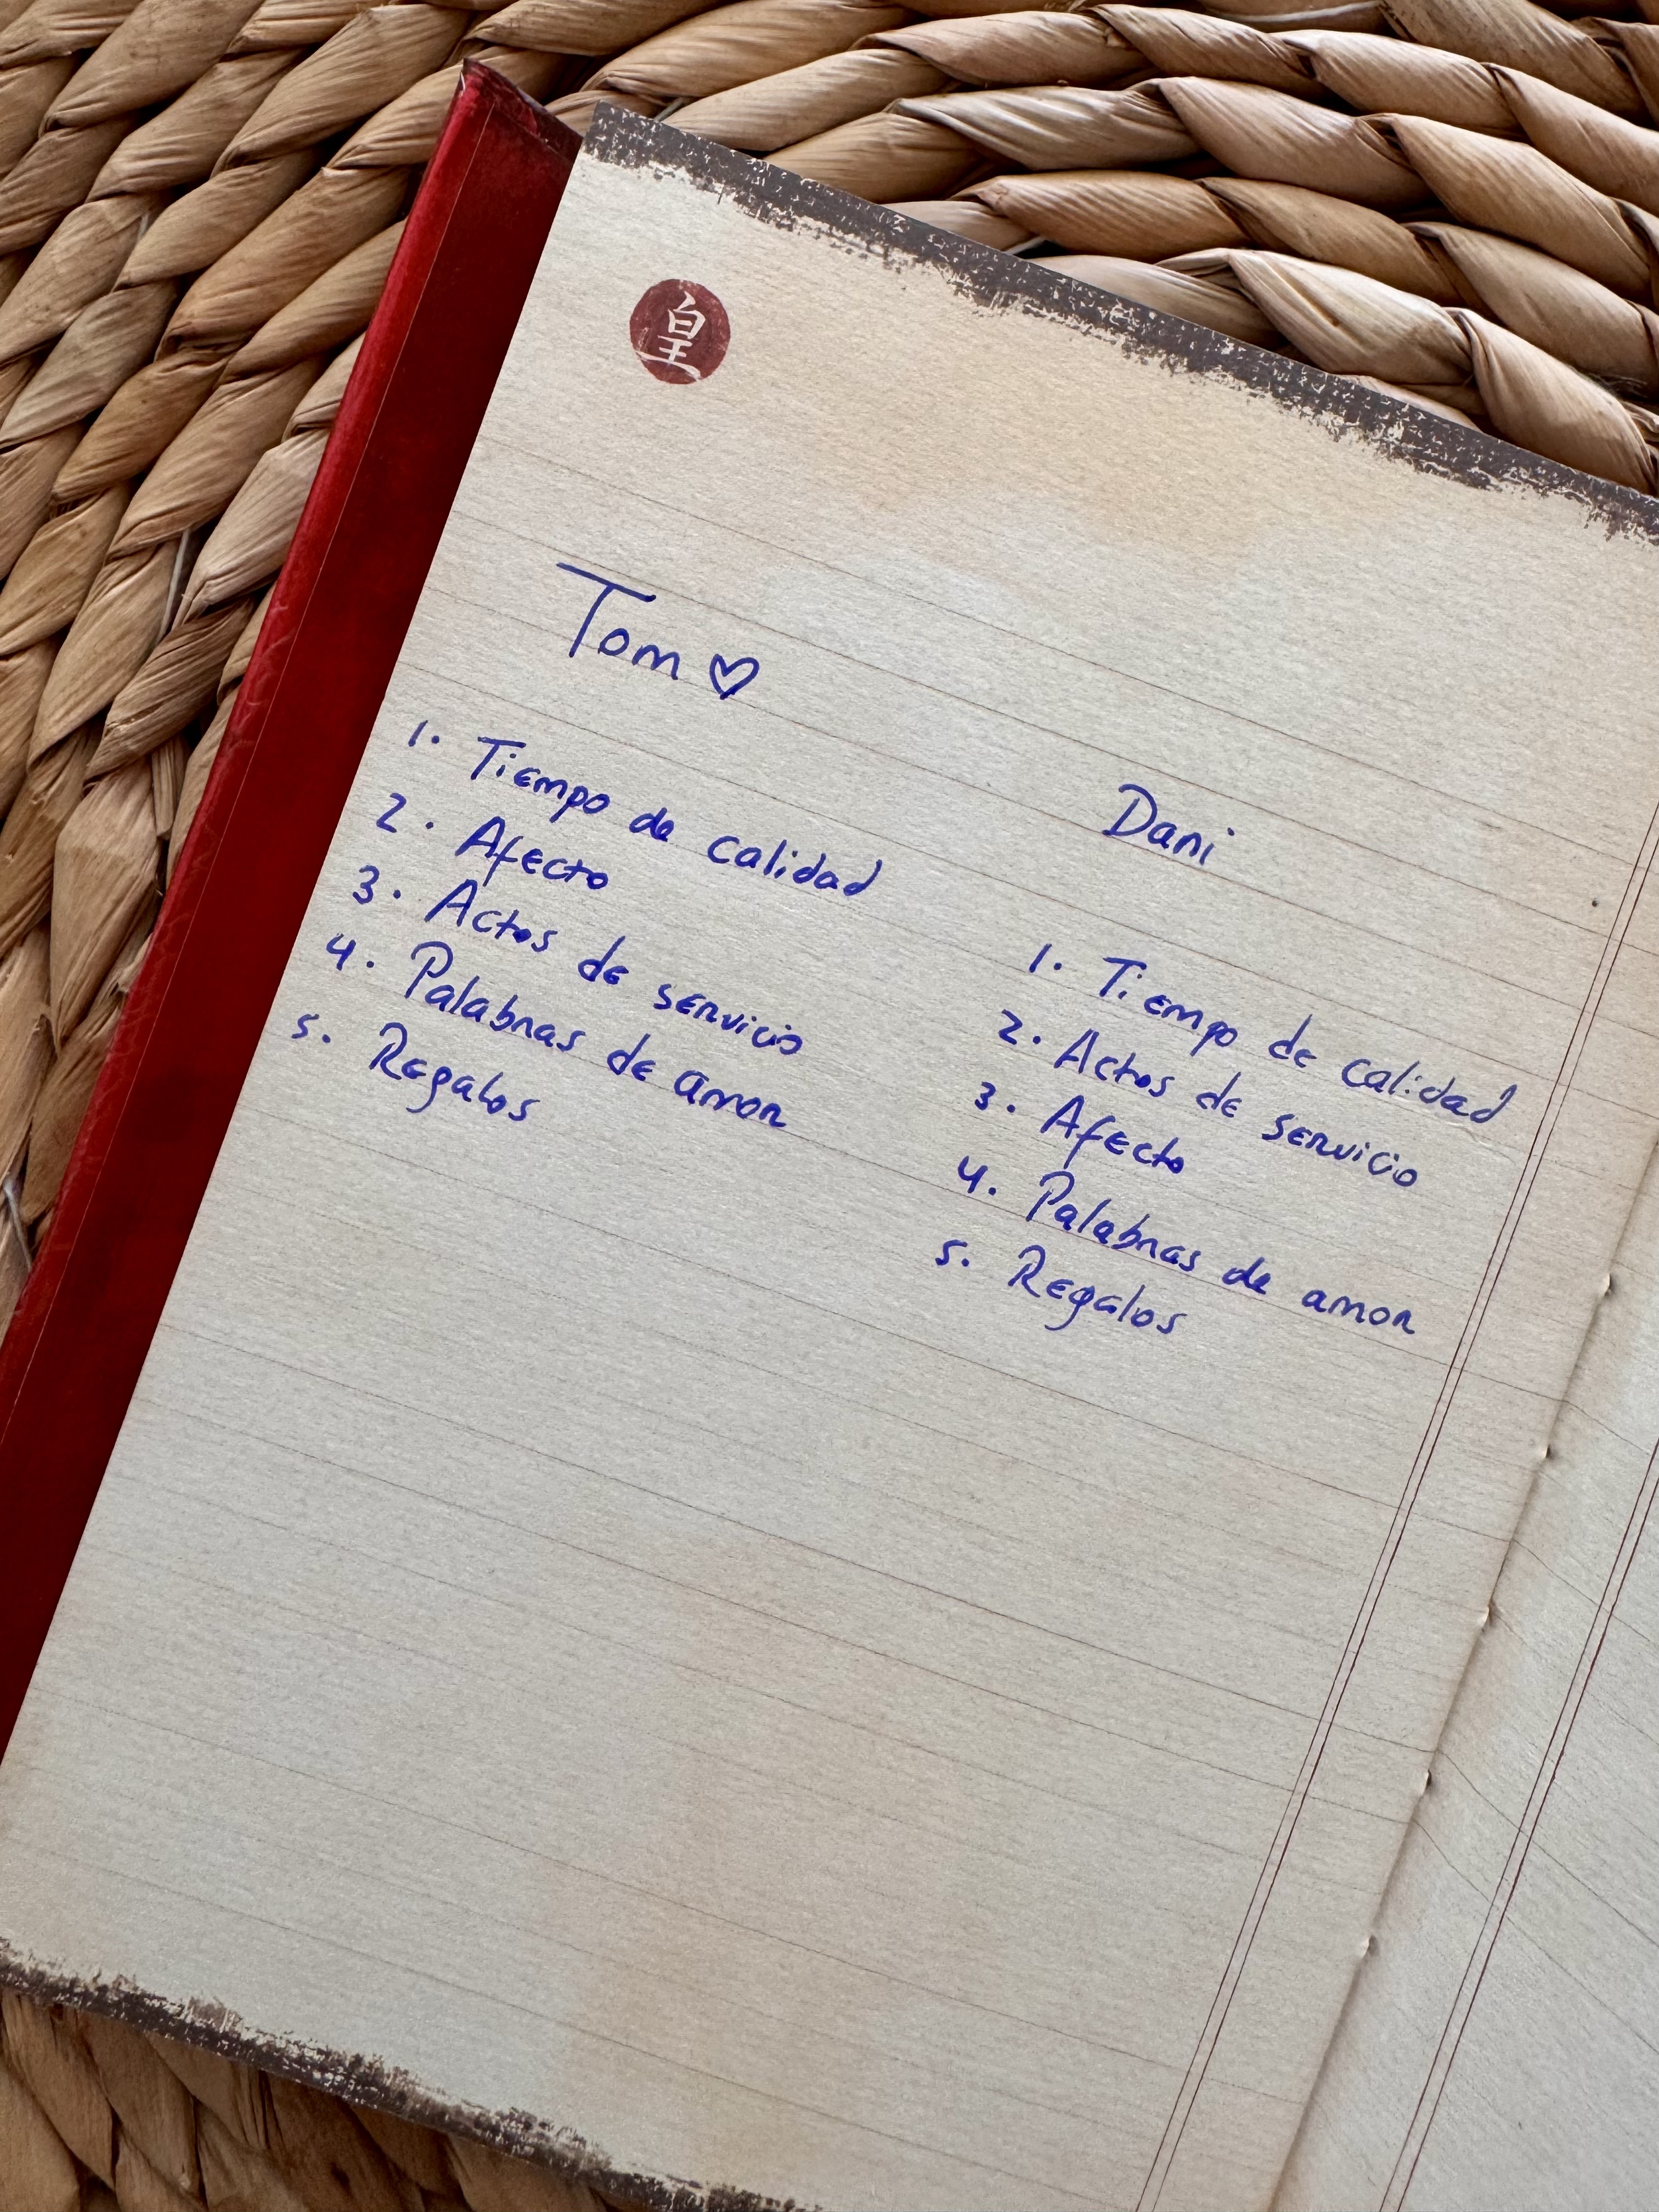 皇
Tom ♡
1. Tiempo de calidad
2. Afecto
3. Actos de servicio
4. Palabras de amor
5. Regalos
Dani
1. Tiempo de calidad
2. Actos de servicio
3. Afecto
4. Palabras de amor
5. Regalos